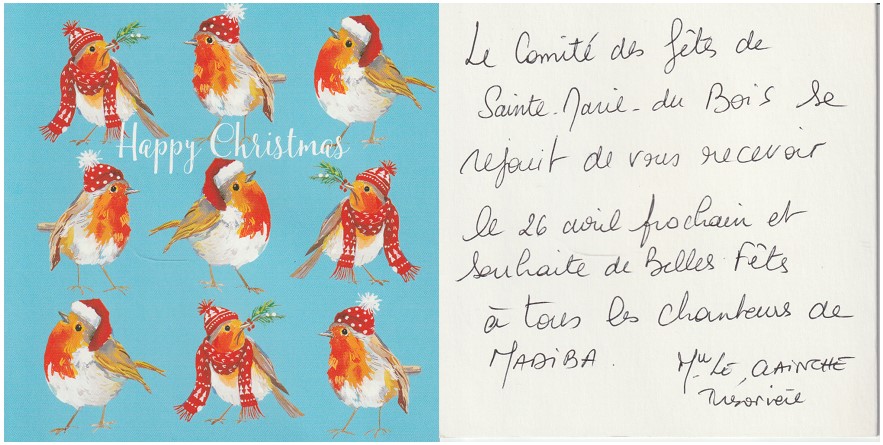 Happy Christmas
Le Comité des fêtes de
Sainte-Marie-du Bois se
réjouit de vous recevoir
le 26 avril prochain et
souhaite de Belles Fêtes
à tous les chanteurs de
MADIBA.
LE CLAINCHE
Trésorière